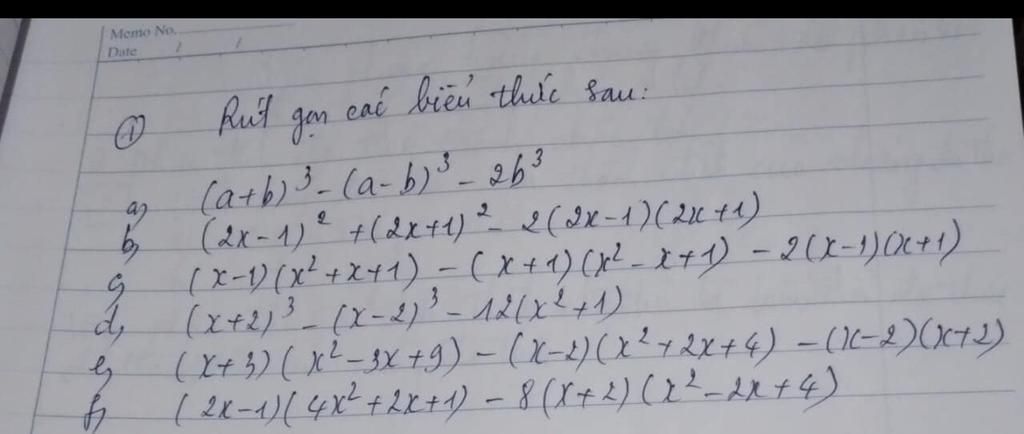 Memo No.
Date / /
① Rút gọn các biểu thức sau:
a, (a+b)³ - (a-b)³ - 2b³
b, (2x-1)² + (2x+1)² - 2(2x-1)(2x+1)
c, (x-1)(x²+x+1) - (x+1)(x²-x+1) - 2(x-1)(x+1)
d, (x+2)³ - (x-2)³ - 12(x²+1)
e, (x+3)(x²-3x+9) - (x-2)(x²+2x+4) - (x-2)(x+2)
f, (2x-1)(4x²+2x+1) - 8(x+2)(x²-2x+4)